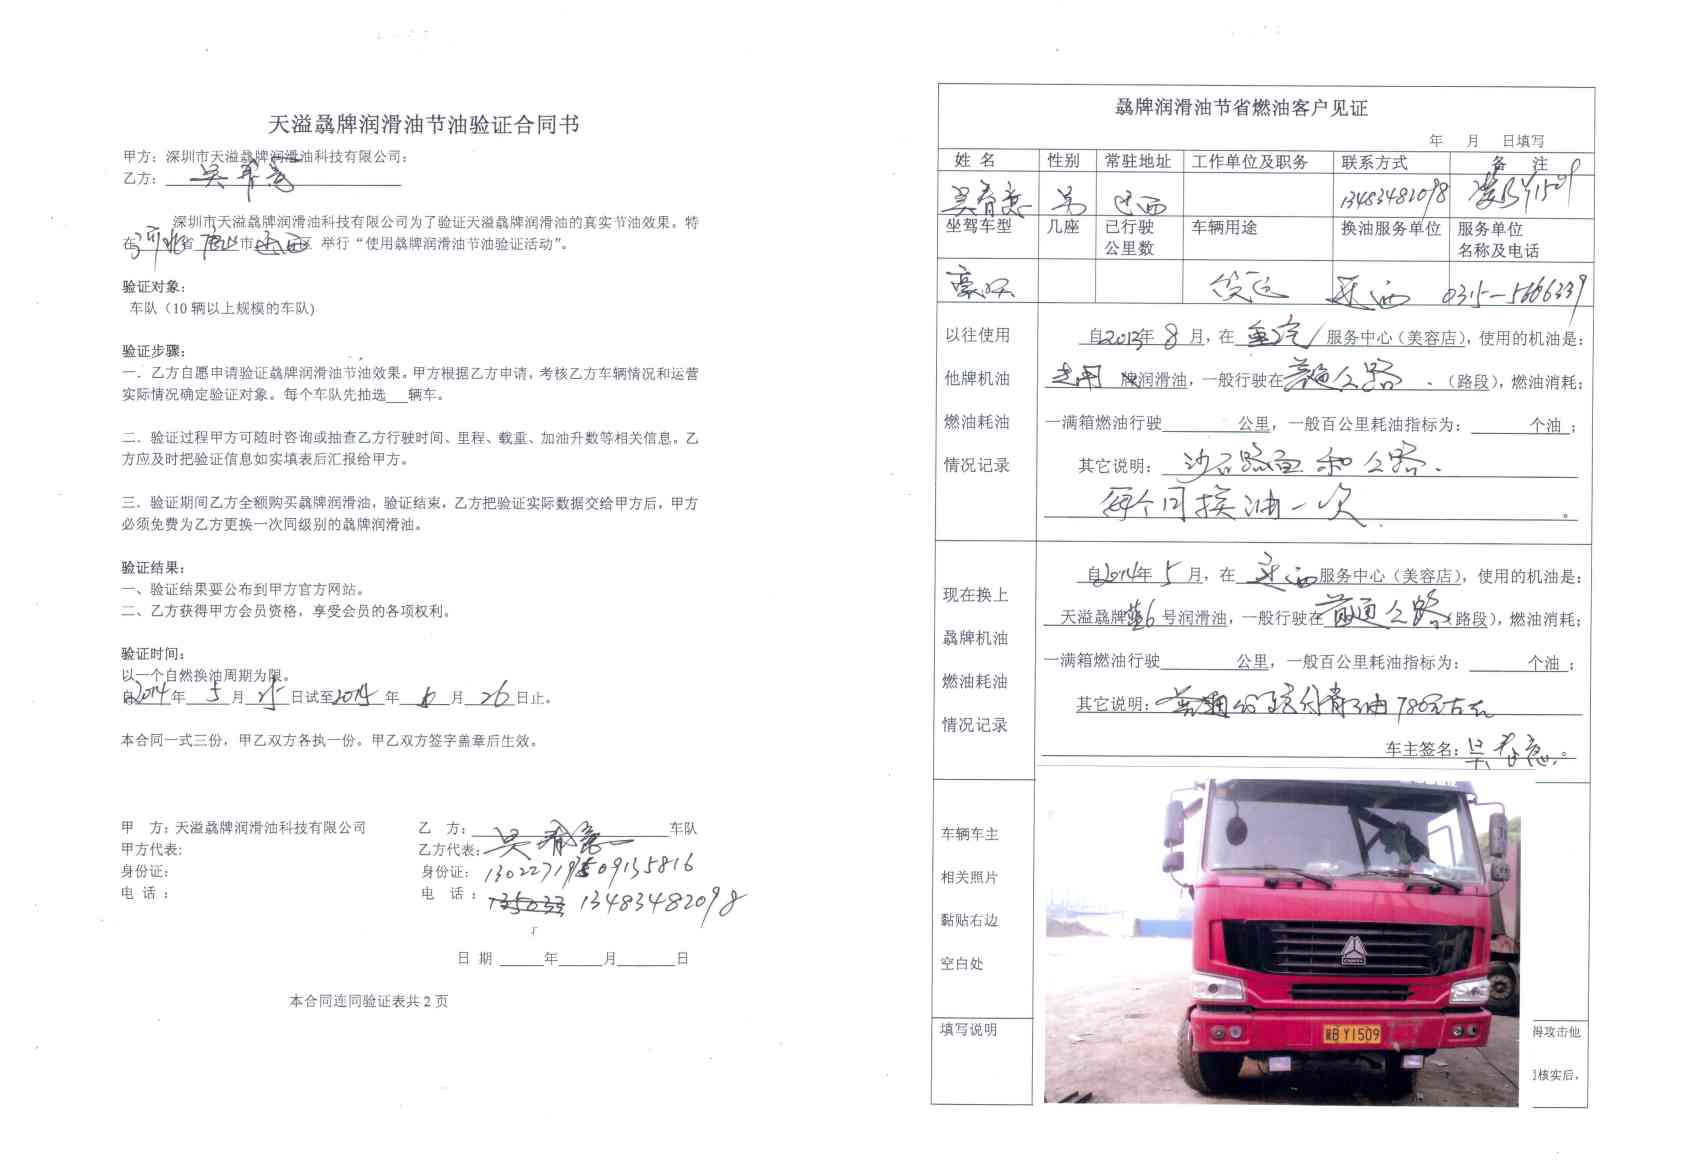 天溢骉牌润滑油节油验证合同书
甲方：深圳市天溢骉牌润滑油科技有限公司：
乙方：吴春意
深圳市天溢骉牌润滑油科技有限公司为了验证天溢骉牌润滑油的真实节油效果。特
在河北省唐山市迁西区 举行“使用骉牌润滑油节油验证活动”。
验证对象：
车队（10 辆以上规模的车队）
验证步骤：
一．乙方自愿申请验证骉牌润滑油节油效果。甲方根据乙方申请，考核乙方车辆情况和运营
实际情况确定验证对象。每个车队先抽选___辆车。
二．验证过程甲方可随时咨询或抽查乙方行驶时间、里程、载重、加油升数等相关信息。乙
方应及时把验证信息如实填表后汇报给甲方。
三．验证期间乙方全额购买骉牌润滑油，验证结束，乙方把验证实际数据交给甲方后，甲方
必须免费为乙方更换一次同级别的骉牌润滑油。
验证结果：
一、验证结果要公布到甲方官方网站。
二、乙方获得甲方会员资格，享受会员的各项权利。
验证时间：
以一个自然换油周期为限。
自2014年 5 月 日试至2014 年 6 月 26 日止。
本合同一式三份，甲乙双方各执一份。甲乙双方签字盖章后生效。
甲 方：天溢骉牌润滑油科技有限公司
甲方代表：
身份证：
电 话：
乙 方：______车队
乙方代表：吴春意
身份证：130227195509135816
电 话：13483482098
日 期 _____年_____月_____日
本合同连同验证表共 2 页
骉牌润滑油节省燃油客户见证
年 月 日填写
姓 名 性别 常驻地址 工作单位及职务 联系方式 备 注
吴春意 男 迁西 13483482098 冀BY1509
坐驾车型 几座 已行驶公里数 车辆用途 换油服务单位 服务单位名称及电话
豪沃 货运 迁西 0315-5666339
以往使用
他牌机油
燃油耗油
情况记录
自2013年 8 月，在 重汽 服务中心（美容店），使用的机油是：
专用 牌润滑油，一般行驶在普通公路（路段），燃油消耗：
一满箱燃油行驶______公里，一般百公里耗油指标为：______个油；
其它说明：沙石路面和公路．
每个月换油一次。
现在换上
骉牌机油
燃油耗油
情况记录
自2014年 5 月，在 迁西服务中心（美容店），使用的机油是：
天溢骉牌蓝6号润滑油，一般行驶在普通公路（路段），燃油消耗：
一满箱燃油行驶______公里，一般百公里耗油指标为：______个油；
其它说明：油780元左右
车主签名：吴春意。
车辆车主
相关照片
黏贴右边
空白处
冀B Y1509
填写说明
得攻击他
核实后，